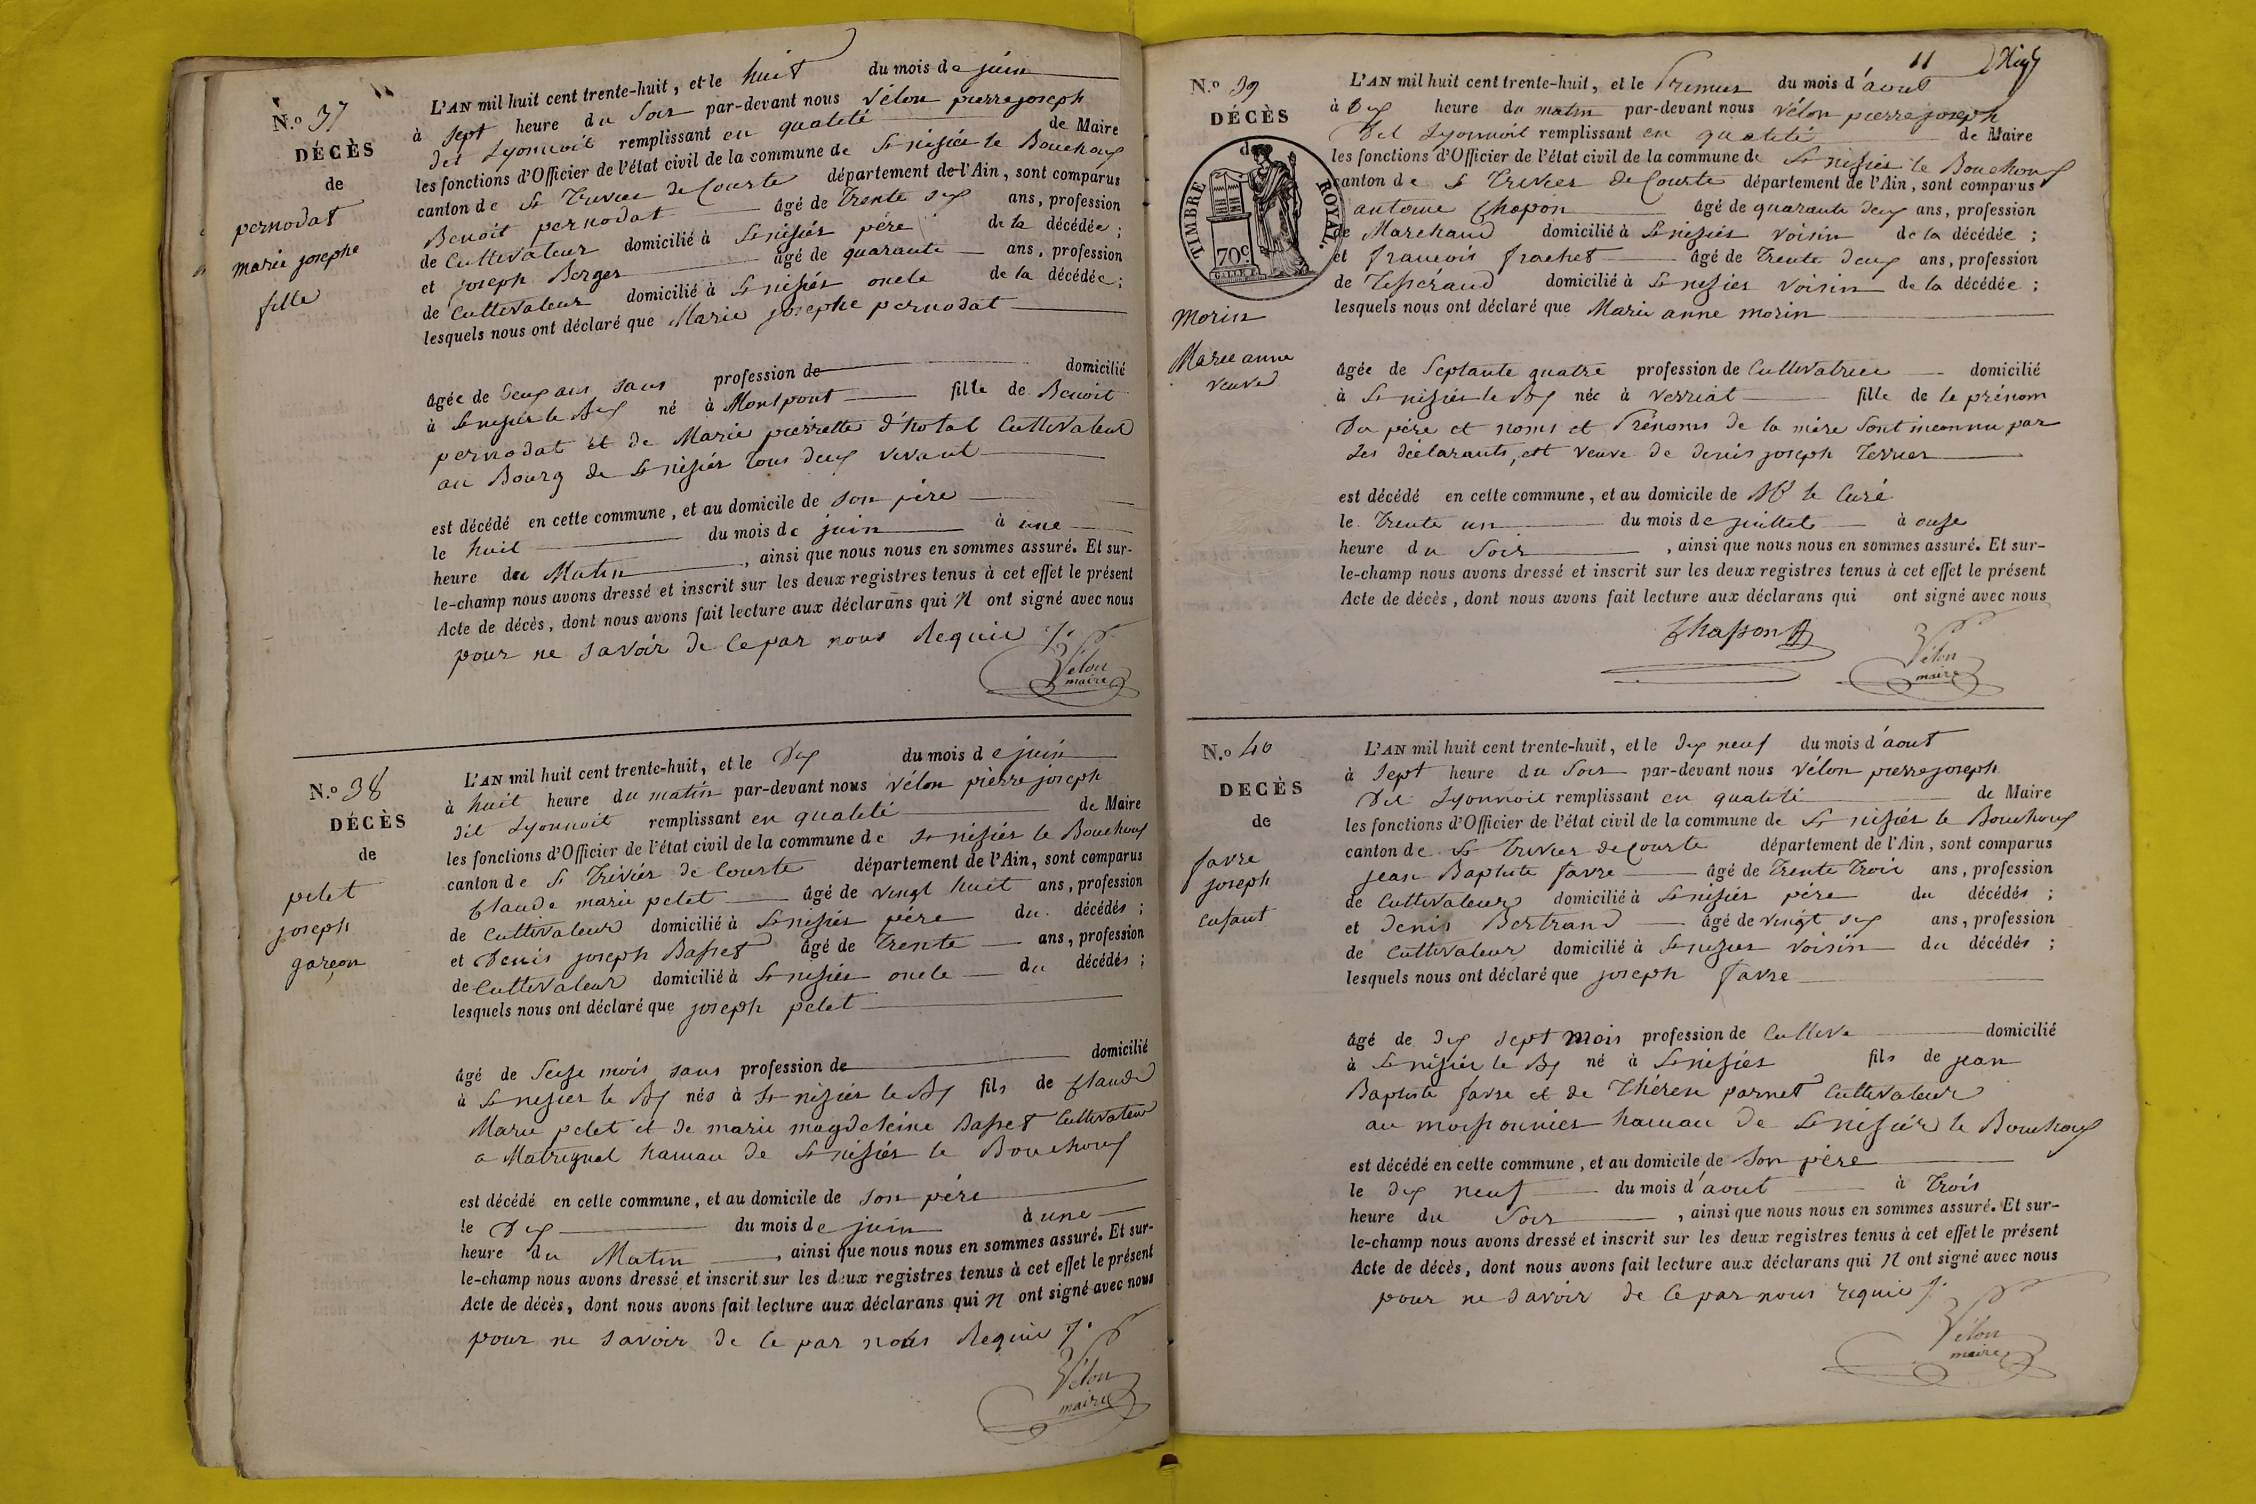 N.º 37
DÉCÈS
de
pernodat
marie josephe
fille
L'AN mil huit cent trente-huit, et le huit du mois de juin
à sept heure du soir par-devant nous Vélon pierre joseph
dit Lyonnoit remplissant en qualité de Maire
les fonctions d'Officier de l'état civil de la commune de St nisier le Bouchoux
canton de St Trivier de Courte département de l'Ain, sont comparus
Benoit pernodat âgé de Trente six ans, profession
de Cultivateur domicilié à St nisier père de la décédée ;
et joseph Berger âgé de quarante ans, profession
de Cultivateur domicilié à St nisier oncle de la décédée ;
lesquels nous ont déclaré que Marie josephe pernodat
âgée de deux ans sans profession de domicilié
à St nisier le Bx né à Montpont fille de Benoit
pernodat et de Marie pierrette d'hotal Cultivateur
au Bourg de St nisier tous deux vivant
est décédé en cette commune, et au domicile de son père
le huit du mois de juin à une
heure du Matin, ainsi que nous nous en sommes assuré. Et sur-
le-champ nous avons dressé et inscrit sur les deux registres tenus à cet effet le présent
Acte de décès, dont nous avons fait lecture aux déclarans qui N ont signé avec nous
pour ne savoir de ce par nous Requis
Vélon
maire
N.º 38
DÉCÈS
de
pelet
joseph
garçon
L'AN mil huit cent trente-huit, et le Dix du mois de juin
à huit heure du matin par-devant nous Vélon pierre joseph
dit Lyonnoit remplissant en qualité de Maire
les fonctions d'Officier de l'état civil de la commune de St nisier le Bouchoux
canton de St Trivier de Courte département de l'Ain, sont comparus
Claude marie pelet âgé de vingt huit ans, profession
de Cultivateur domicilié à St nisier père du décédés ;
et Denis joseph Basset âgé de Trente ans, profession
de Cultivateur domicilié à St nisier oncle du décédés ;
lesquels nous ont déclaré que joseph pelet
âgé de Seize mois sans profession de domicilié
à St nisier le Bx nés à St nisier le Bx fils de Claude
Marie pelet et de marie magdeleine Basset Cultivateur
a Matrignat hameau de St nisier le Bouchoux
est décédé en cette commune, et au domicile de son père
le Dix du mois de juin à une
heure du Matin, ainsi que nous nous en sommes assuré. Et sur-
le-champ nous avons dressé et inscrit sur les deux registres tenus à cet effet le présent
Acte de décès, dont nous avons fait lecture aux déclarans qui N ont signé avec nous
pour ne savoir de ce par nous Requis
Vélon
maire
11
N.º 39
DÉCÈS
de
TIMBRE ROYAL.
70c
morin
Marie anne
veuve
L'AN mil huit cent trente-huit, et le Premier du mois d'aout
à Dix heure du matin par-devant nous Vélon pierre joseph
Dit Lyonnoit remplissant en qualité de Maire
les fonctions d'Officier de l'état civil de la commune de St nisier le Bouchoux
canton de St Trivier de Courte département de l'Ain, sont comparus
antoine Chapon âgé de quarante deux ans, profession
de Marchand domicilié à St nisier voisin de la décédée ;
et francois frachet âgé de Trente deux ans, profession
de Tisserand domicilié à St nisier voisin de la décédée ;
lesquels nous ont déclaré que Marie anne morin
âgée de Septante quatre profession de Cultivatrice domicilié
à St nisier le Bx née à verriat fille de le prénom
Du père et noms et Prénoms de la mère sont inconnu par
Les déclarants, est veuve de denis joseph Terrier
est décédé en cette commune, et au domicile de Mr le Curé
le Trente un du mois de juillet à onze
heure du Soir, ainsi que nous nous en sommes assuré. Et sur-
le-champ nous avons dressé et inscrit sur les deux registres tenus à cet effet le présent
Acte de décès, dont nous avons fait lecture aux déclarans qui ont signé avec nous
Chapon
Vélon
maire
N.º 40
DECÈS
de
favre
joseph
enfant
L'AN mil huit cent trente-huit, et le dix neuf du mois d'aout
à sept heure du Soir par-devant nous Vélon pierre joseph
Dit Lyonnoit remplissant en qualité de Maire
les fonctions d'Officier de l'état civil de la commune de St nisier le Bouchoux
canton de St Trivier de Courte département de l'Ain, sont comparus
jean Baptiste favre âgé de Trente Trois ans, profession
de Cultivateur domicilié à St nisier père du décédés ;
et denis Bertrand âgé de vingt six ans, profession
de Cultivateur domicilié à St nisier voisin du décédés ;
lesquels nous ont déclaré que joseph favre
âgé de dix sept mois profession de Cultiva domicilié
à St nisier le Bx né à St nisier fils de jean
Baptiste favre et de Thérèse parnet Cultivateur
au moissonnier hameau de St nisier le Bouchoux
est décédé en cette commune, et au domicile de Son père
le dix neuf du mois d'aout à Trois
heure du Soir, ainsi que nous nous en sommes assuré. Et sur-
le-champ nous avons dressé et inscrit sur les deux registres tenus à cet effet le présent
Acte de décès, dont nous avons fait lecture aux déclarans qui N ont signé avec nous
pour ne savoir de ce par nous requis
Vélon
maire